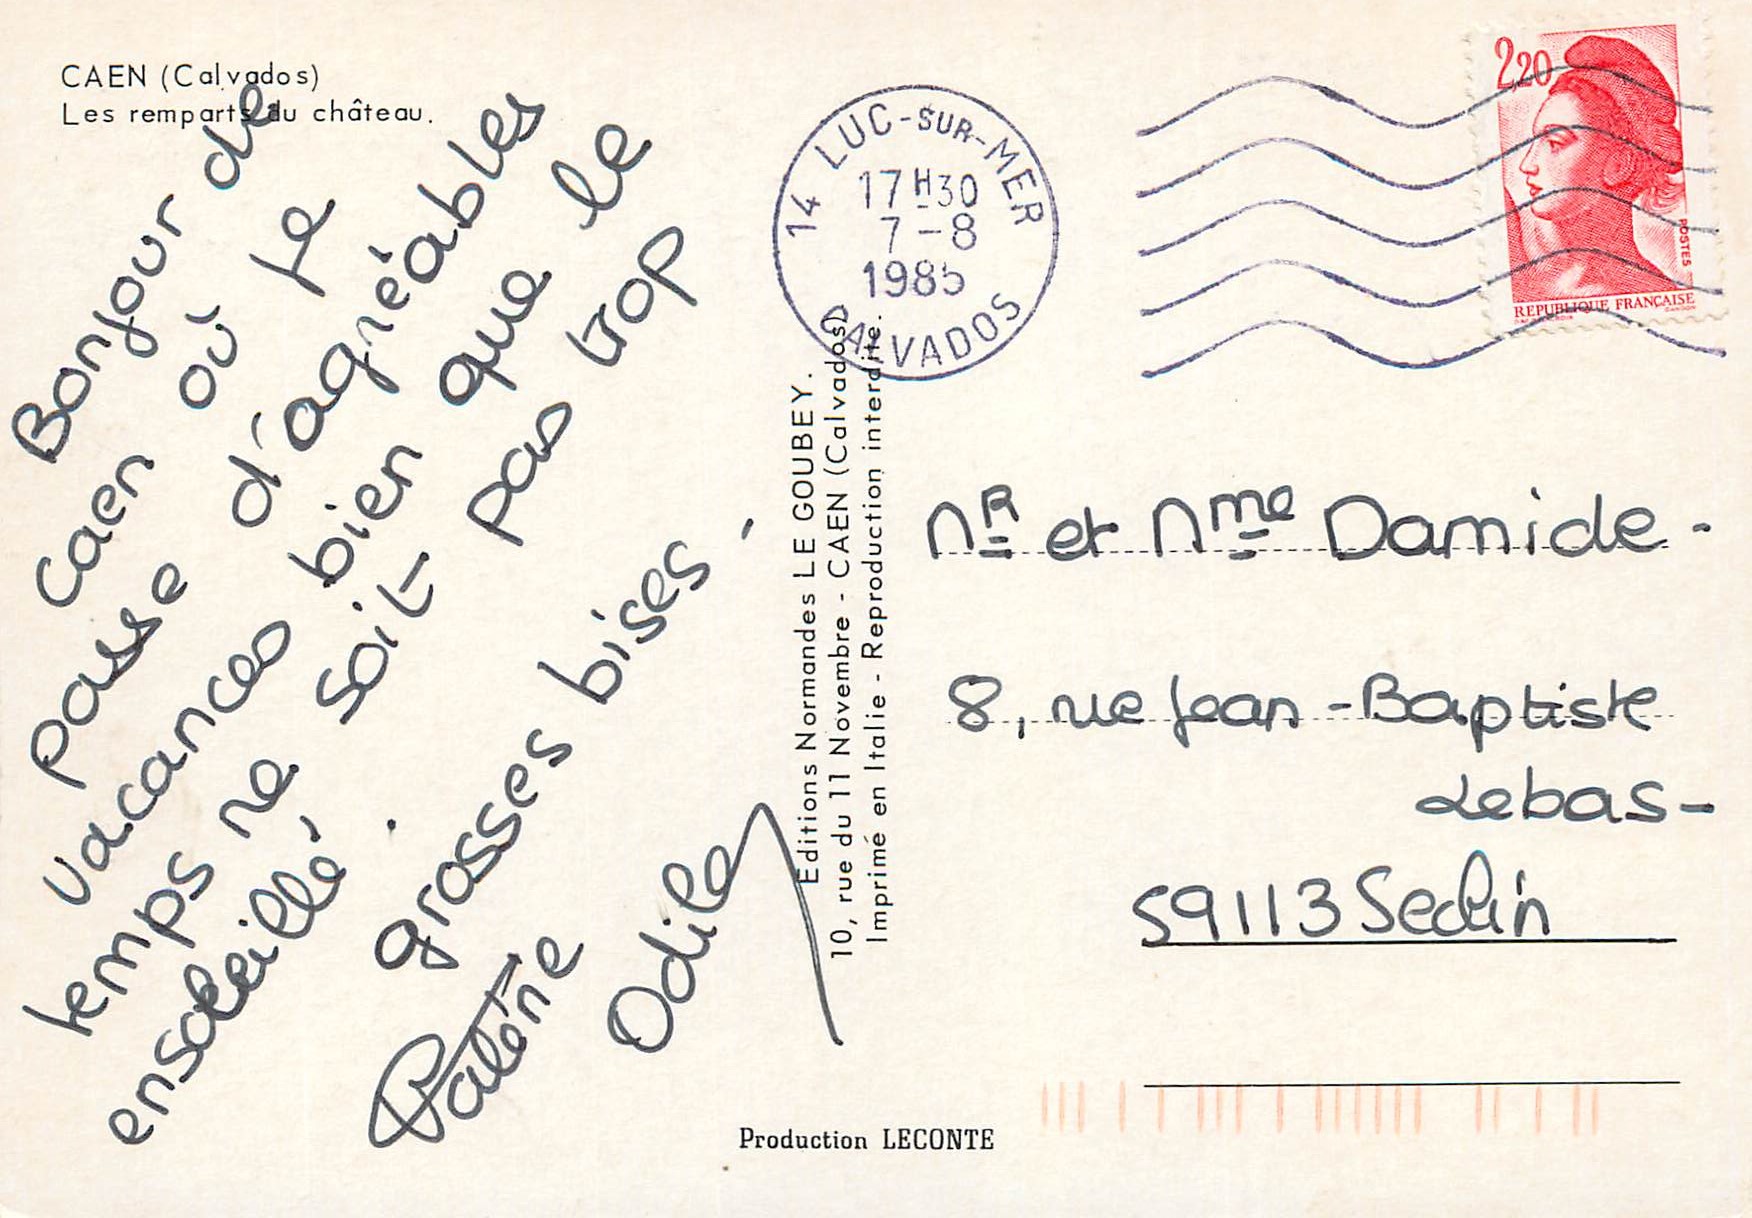 CAEN (Calvados)
Les remparts du château.
Bonjour de
Caen où je
passe d'agréables
vacances bien que le
temps ne soit pas trop
ensoleillé.
grosses bises -
Valérie
Odile
Editions Normandes LE GOUBEY.
10, rue du 11 Novembre - CAEN (Calvados)
Imprimé en Italie - Reproduction interdite.
Production LECONTE
14 LUC-SUR-MER
17H30
7-8
1985
CALVADOS
2,20
POSTES
REPUBLIQUE FRANÇAISE
Mr et Mme Damide -
8, rue Jean-Baptiste
Lebas -
59113 Seclin